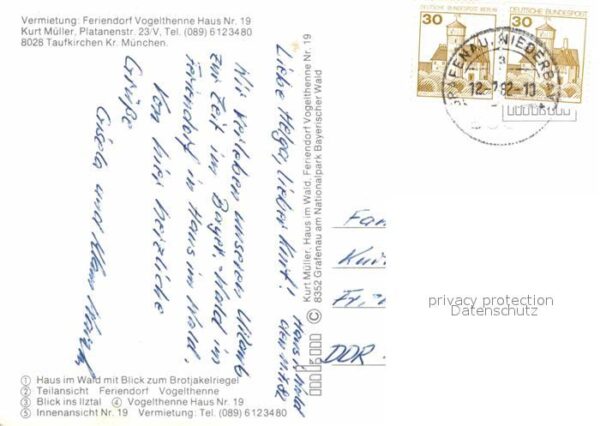 Vermietung: Feriendorf Vogelthenne Haus Nr. 19
Kurt Müller, Platanenstr. 23/V, Tel. (089) 6123480
8028 Taufkirchen Kr. München.
30
DEUTSCHE BUNDESPOST BERLIN
30
DEUTSCHE BUNDESPOST
GRAFENAU, NIEDERBAY
12.-7.82-10
Liebe Helga, lieber Kurt!
Wir verleben unseren Urlaub
zur Zeit im Bayer. Wald im
Feriendorf in Haus im Wald.
Von hier herzliche
Grüße
Gisela und Klaus
Haus i. Wald
den 11.7.82
Kurt Müller, Haus im Wald, Feriendorf Vogelthenne Nr. 19
8352 Grafenau am Nationalpark Bayerischer Wald
©
Fam.
Kur
DDR -
privacy protection
Datenschutz
① Haus im Wald mit Blick zum Brotjakelriegel
② Teilansicht Feriendorf Vogelthenne
③ Blick ins Ilztal ④ Vogelthenne Haus Nr. 19
⑤ Innenansicht Nr. 19 Vermietung: Tel. (089) 6123480